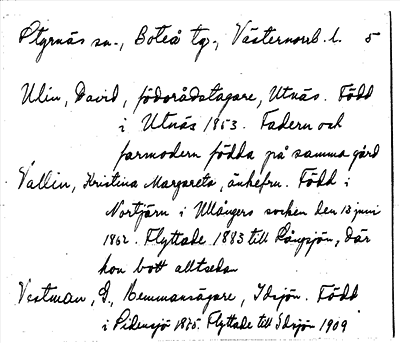 Styrnäs sn., Boteå tg., Västernorrl. l. 5
Ulin, David, födorådstagare, Utnäs. Född
i Utnäs 1853. Fadern och
farmodern födda på samma gård
Vallin, Kristina Margareta, änkefru. Född i
Nortjärn i Ullångers socken den 13 juni
1862. Flyttade 1883 till Långsjön, där
hon bott alltsedan
Vestman, E., Hemmansägare, Idsjön. Född
i Sidensjö 1875. Flyttade till Idsjön 1909